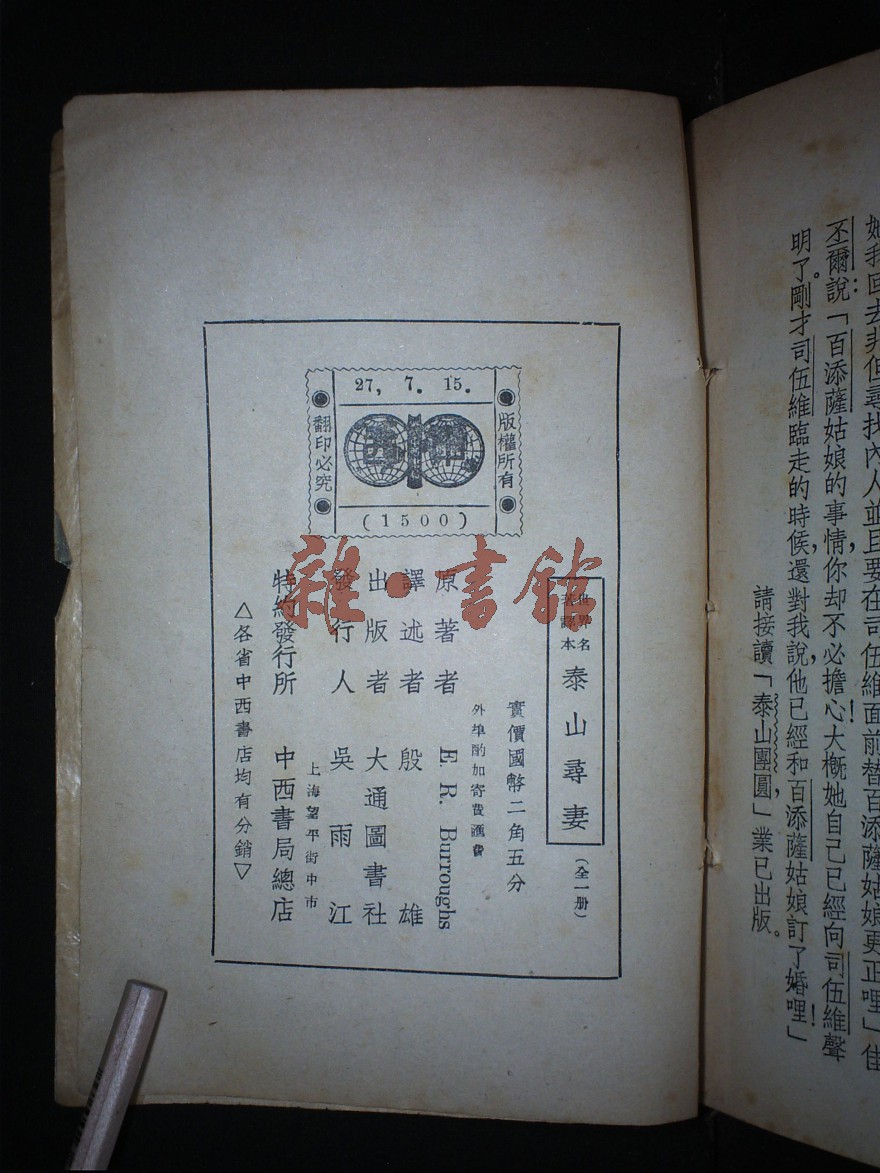 她我回去非但尋找內人並且要在司伍維面前替百添薩姑娘更正哩」佳
丕爾說：「百添薩姑娘的事情，你却不必擔心！大概她自己已經向司伍維聲
明了。剛才司伍維臨走的時候，還對我說，他已經和百添薩姑娘訂了婚哩！」
請接讀「泰山團圓」，業已出版。
27, 7. 15.
版權所有
翻印必究
(1500)
世界名
著譯本
泰山尋妻
（全一册）
實價國幣二角五分
外埠酌加寄費滙費
原著者 E. R. Burroughs
譯述者 殷雄
出版者 大通圖書社
發行人 吳雨江
上海望平街中市
特約發行所 中西書局總店
△各省中西書店均有分銷▽
雜·書館